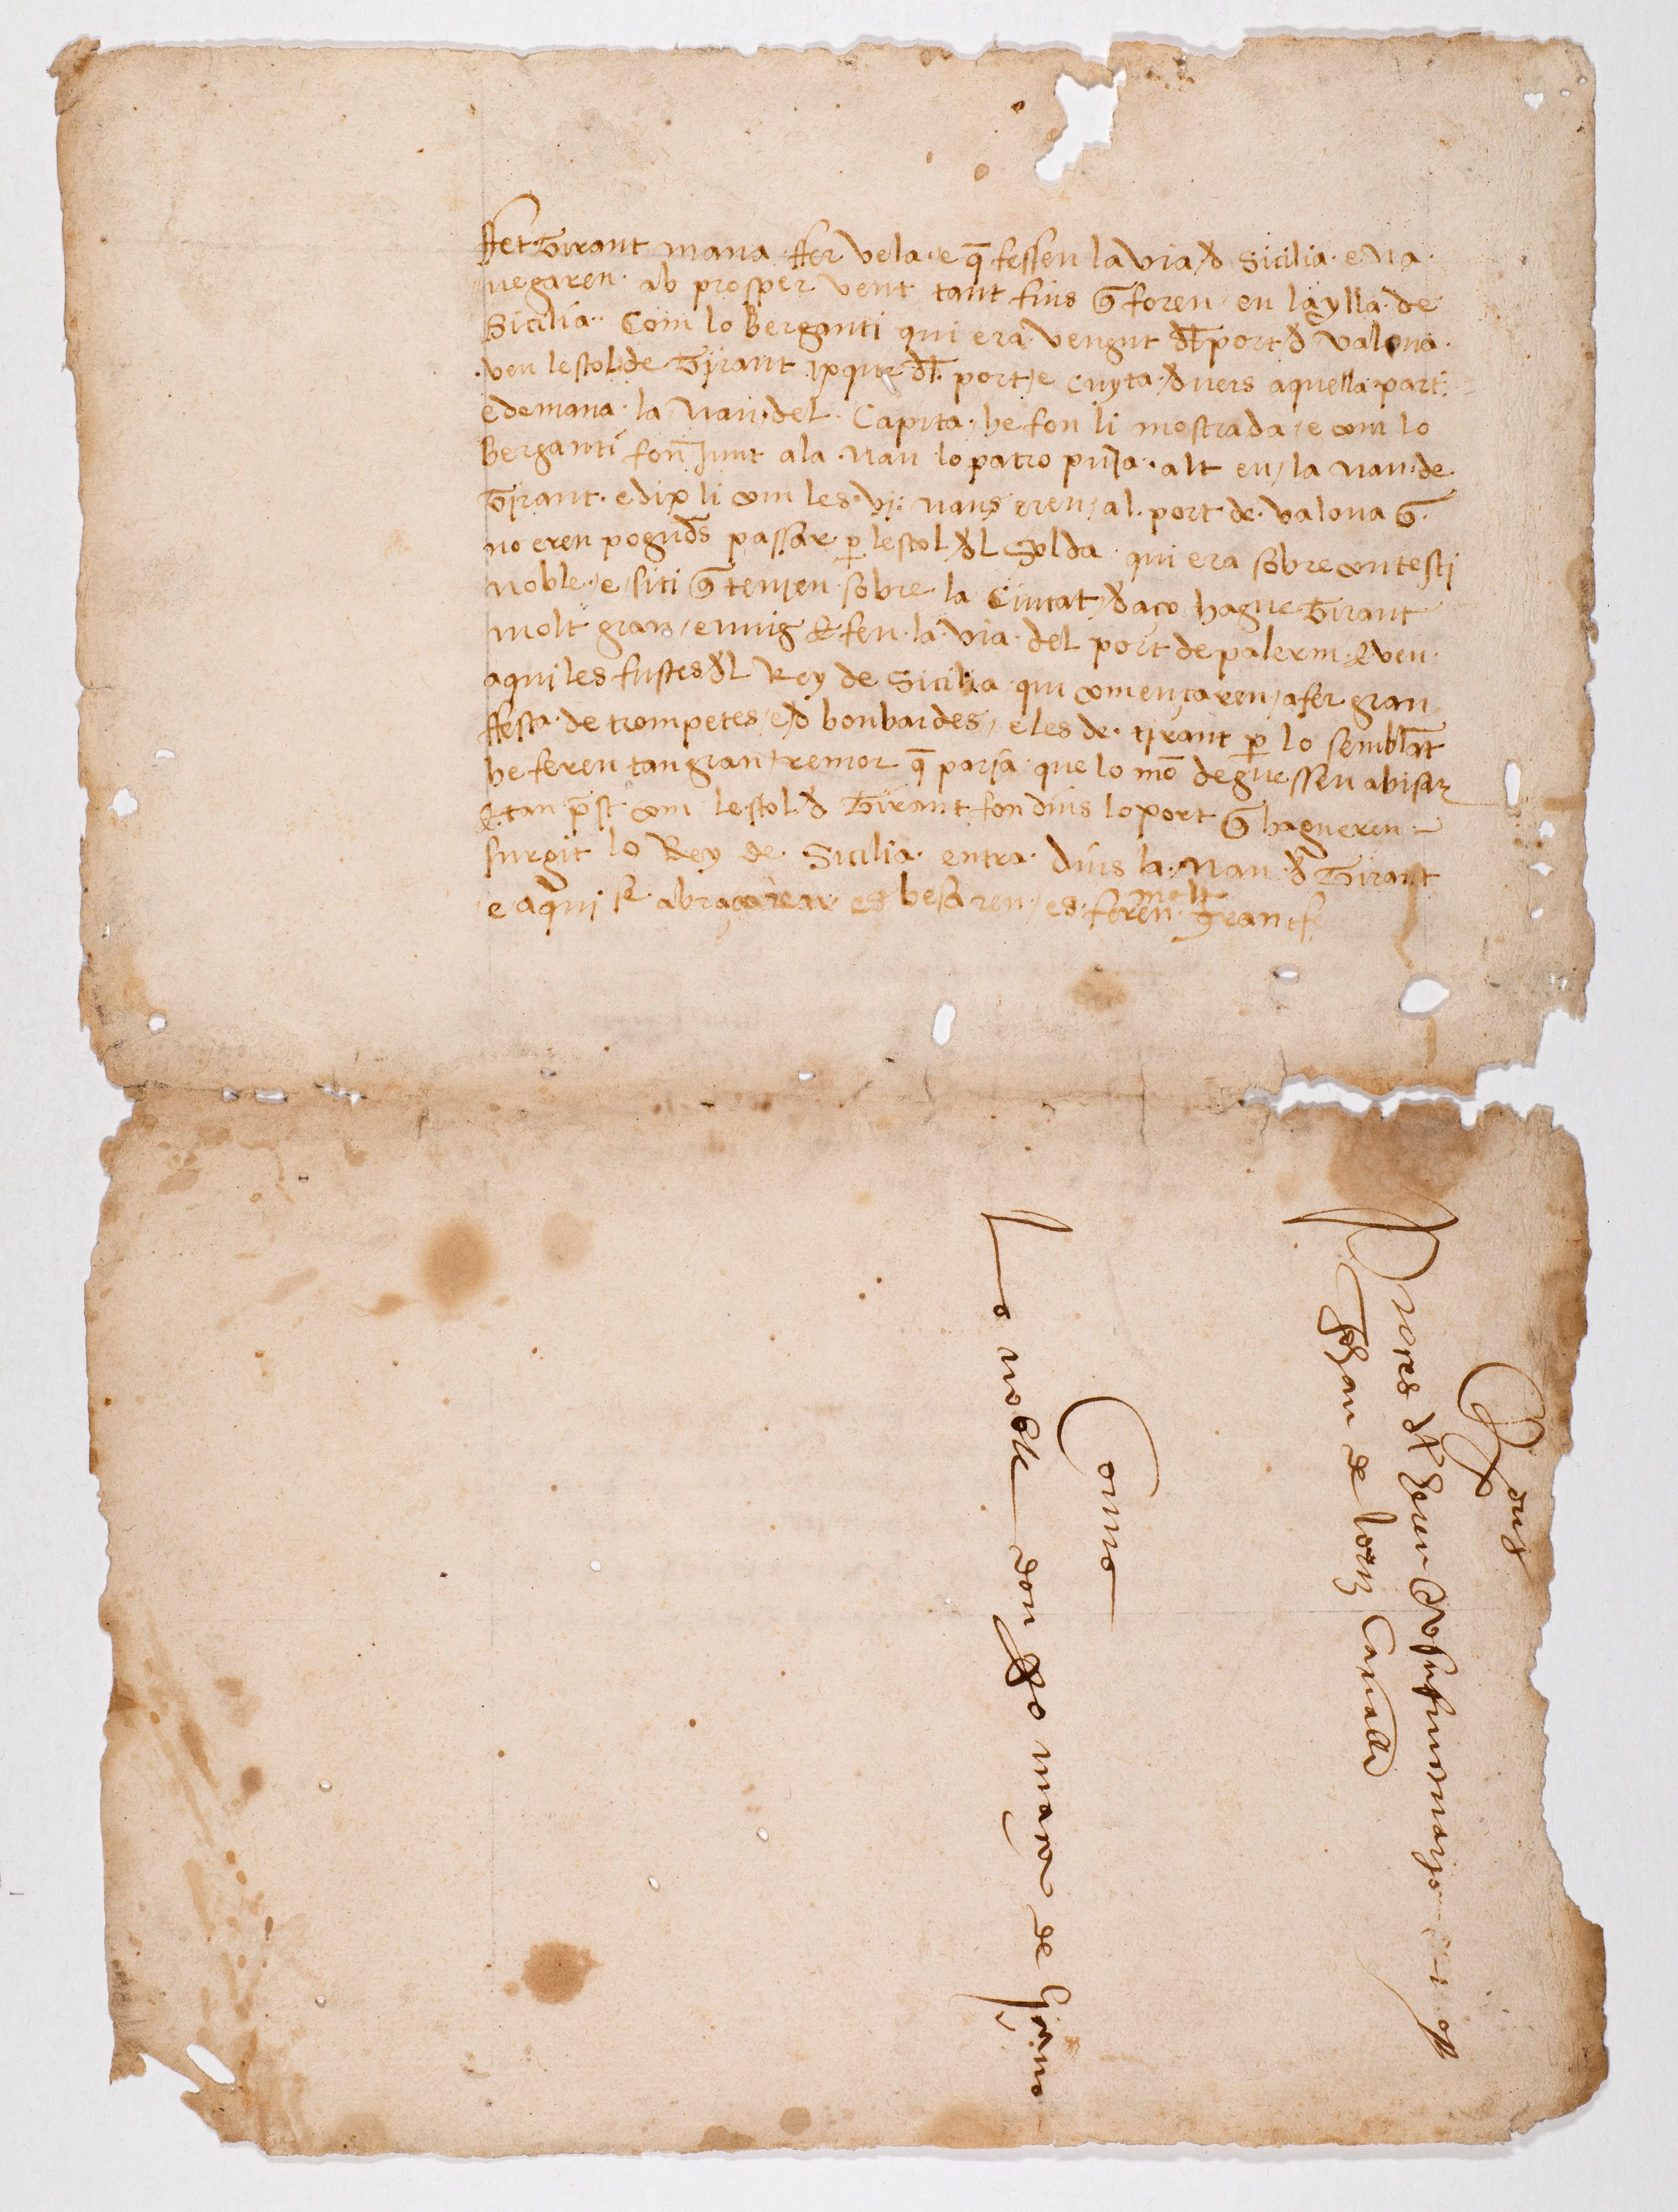 ffet Tirant mana ffer vela e q̄ fessen la via đ Sicilia e na
uegaren ab prosper vent tant fins q̄ foren en la ylla de
Sicilia Com lo Berganti qui era vengut đl port đ valona
veu lestol de Tirant ixque đl port e cuyta đuers aquella part
e demana la Nau del Capita he fon li mostrada e com lo
Berganti fon Junt ala Nau lo patro puja alt en la nau de
Tirant e dix li com les vj naus eren al port de valona q̄
no eren poguđs passar p̱ lestol đl Solda qui era sobre contesti
noble e siti q̄ tenien sobre la Ciutat đaço hague Tirant
molt gran ennug & feu la via del port de palerm & veu
aqui les fustes đl Rey de Sicilia qui començaren afer gran
ffesta de trompetes e đ bonbardes e les de tirant p̱ lo semblāt
he feren tan gran tremor q̄ paria que lo mō degues sen abisar
& tan p̄st com lestol đ Tirant fon dins lo port q̄ hagueren
surgit lo Rey de Sicilia entra dins la Nau đ Tirant
e aqui se abraçaren es besaren es feren molt gran f
Lo noble don
Como
Johan de